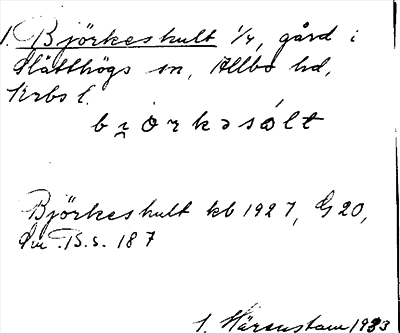 1. Björkeshult 1/4, gård i
Slätthögs sn, Allbo hd,
Krbs l.
björkəsólt
Björkeshult kb 1927, G 20,
Sm B.s. 187
S. Härenstam 1933